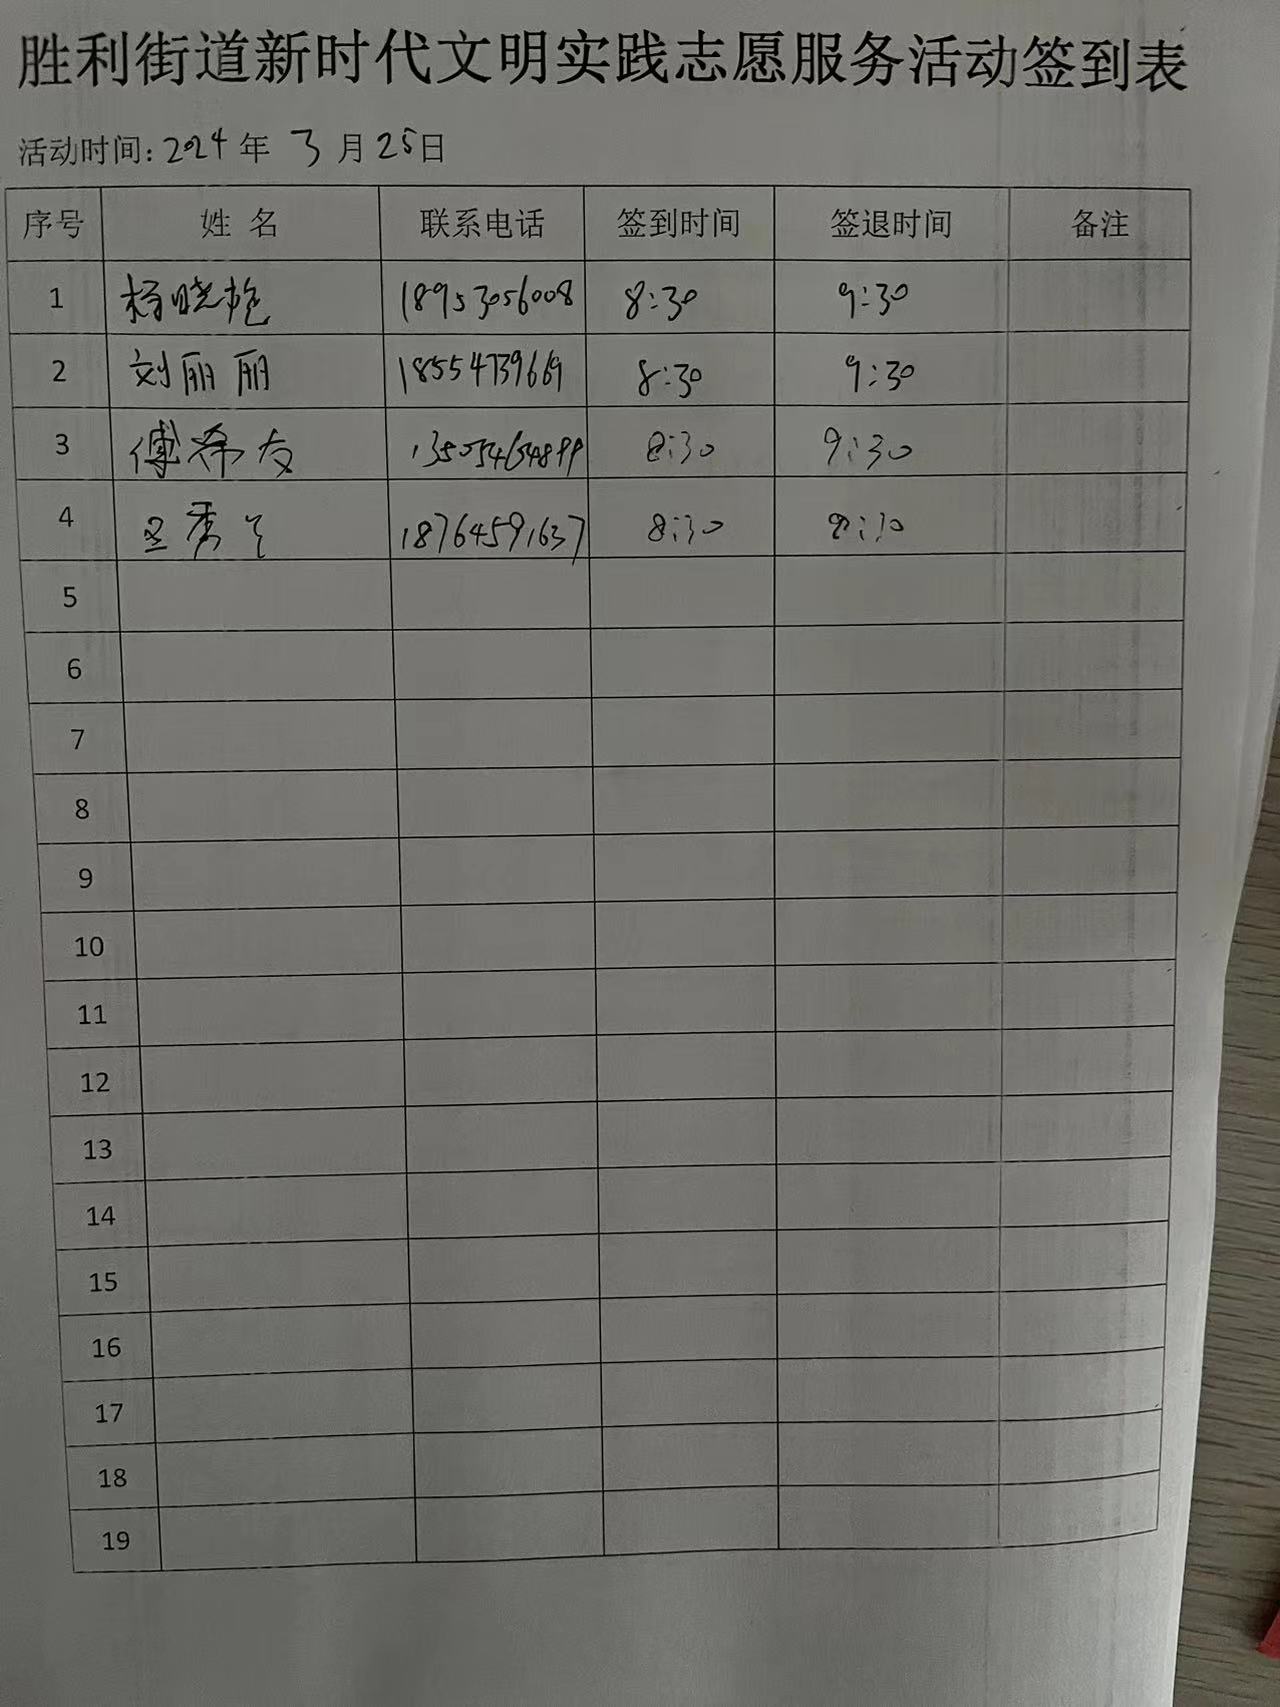 胜利街道新时代文明实践志愿服务活动签到表
活动时间: 2024 年 3 月 25日
序号 姓 名 联系电话 签到时间 签退时间 备注
1 杨晓艳 18953056008 8:30 9:30
2 刘丽丽 18554739669 8:30 9:30
3 傅希友 13505464899 8:30 9:30
4 秀 18764591637 8:30
5
6
7
8
9
10
11
12
13
14
15
16
17
18
19